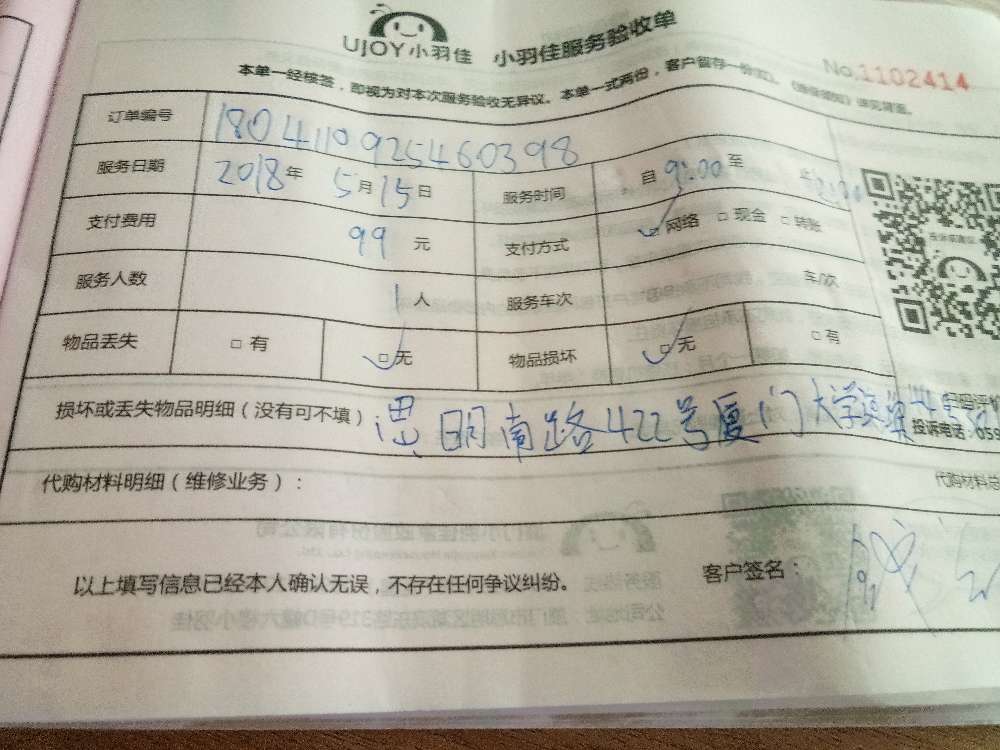 UJOY小羽佳 小羽佳服务验收单
No.1102414
本单一经核签，即视为对本次服务验收无异议。本单一式两份，客户留存一份
订单编号 1804110925460398
服务日期 2018年 5月15日 服务时间 自9:00至
支付费用 99 元 支付方式 网络 □现金 □转账
服务人数 1人 服务车次 车/次
物品丢失 □有 □无 物品损坏 □无 □有
损坏或丢失物品明细（没有可不填） 思明南路422号厦门大学
投诉电话：
代购材料明细（维修业务）： 代购材料总
以上填写信息已经本人确认无误，不存在任何争议纠纷。 客户签名：